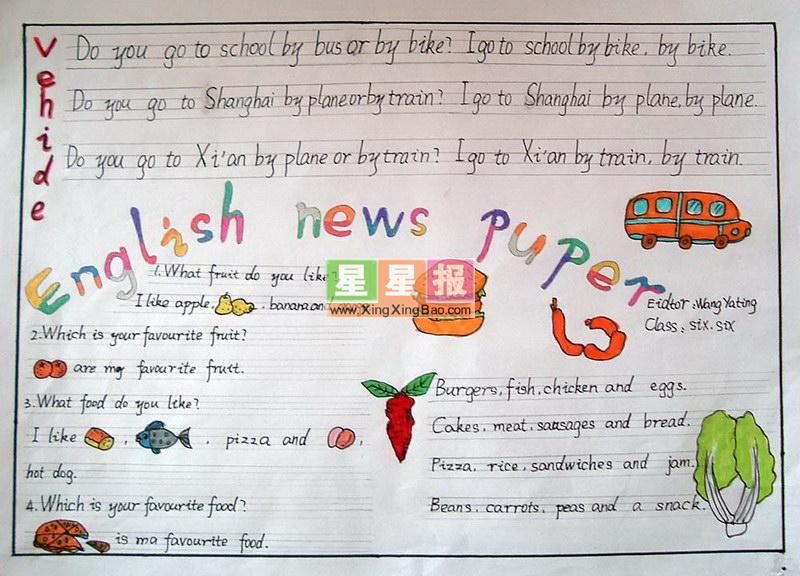 Vehide
Do you go to school by bus or by bike? I go to school by bike, by bike.
Do you go to Shanghai by plane or by train? I go to Shanghai by plane, by plane.
Do you go to Xi'an by plane or by train? I go to Xi'an by train, by train.
English news puper
1.What fruit do you like?
I like apple, , banana an
星星报
www.XingXingBao.com
Eidtor:Wang Yating
Class:six.six
2.Which is your favourite fruit?
are my favourite fruit.
3.What food do you like?
I like , , pizza and ,
hot dog.
4.Which is your favourite food?
is ma favourite food.
Burgers, fish, chicken and eggs.
Cakes, meat, sausages and bread.
Pizza, rice, sandwiches and jam.
Beans, carrots, peas and a snack.